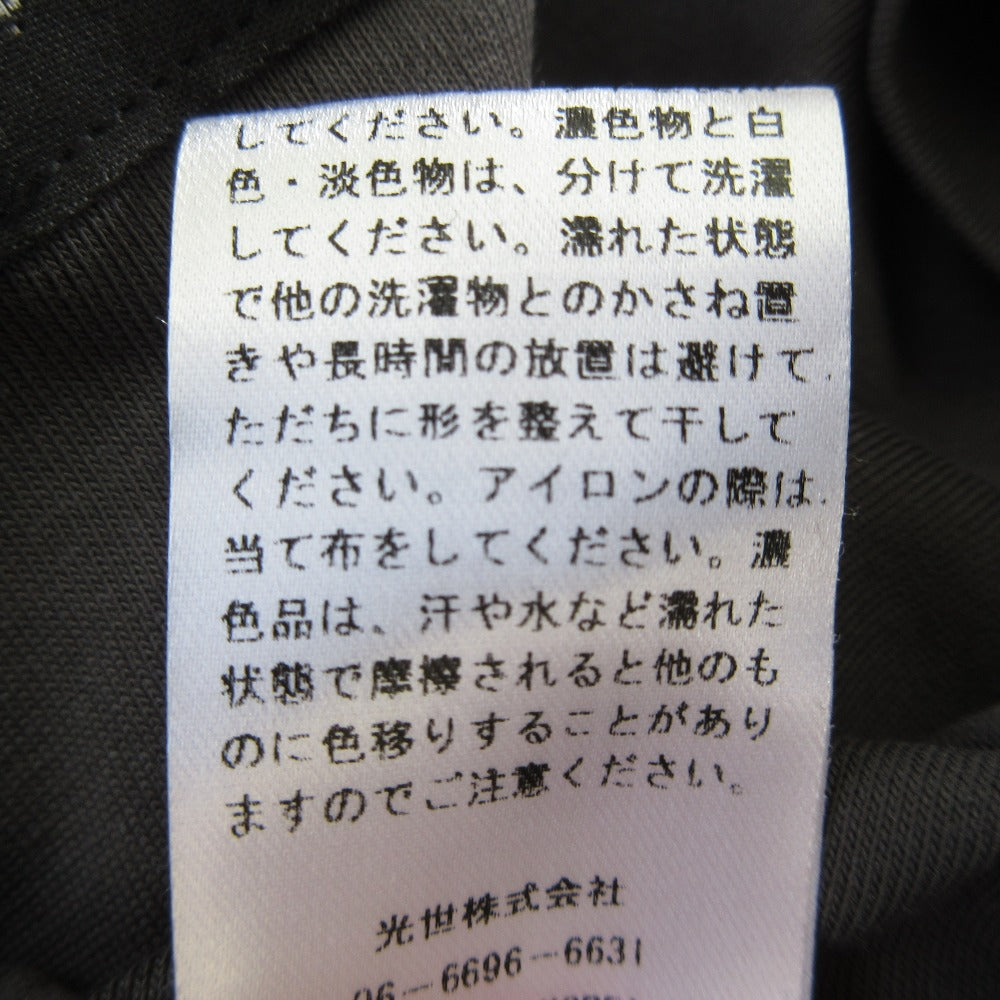 してください。濃色物と白
色・淡色物は、分けて洗濯
してください。濡れた状態
で他の洗濯物とのかさね置
きや長時間の放置は避けて
ただちに形を整えて干して
ください。アイロンの際は
当て布をしてください。濃
色品は、汗や水など濡れた
状態で摩擦されると他のも
のに色移りすることがあり
ますのでご注意ください。
光世株式会社
06-6696-6631